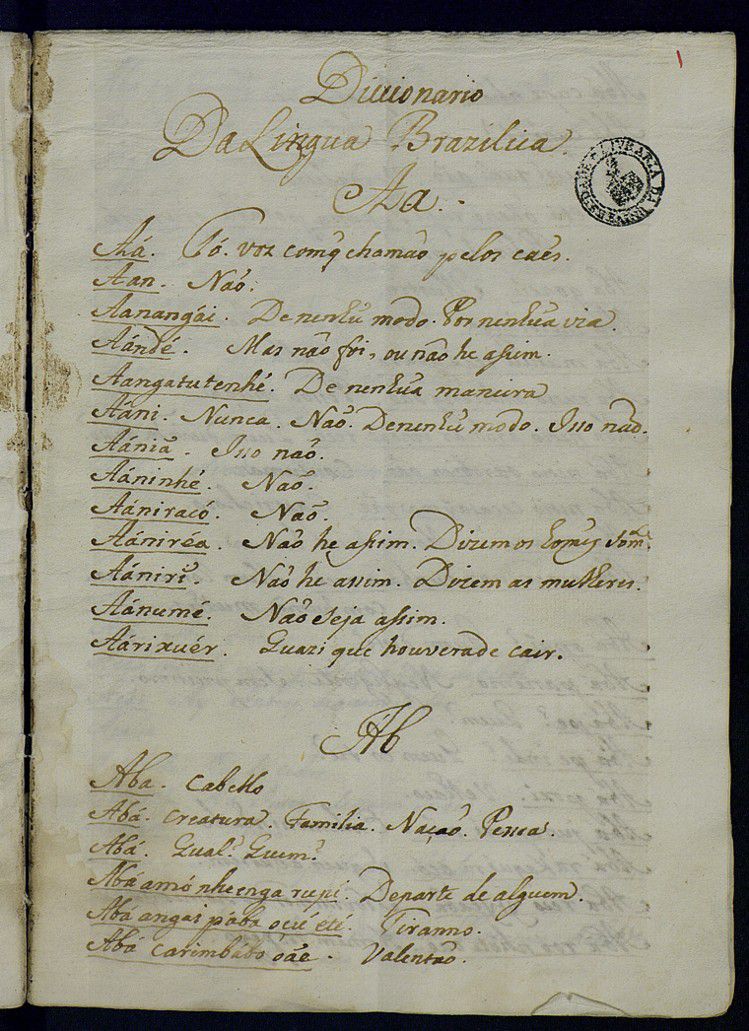 1
Diccionario
Da Lingua Brazilica.
Aa.
LIVRARIA DA UNIVERSIDADE
Aá. Tó. voz comq̃ chamaõ pelos caẽs.
Aan. Naõ.
Aanangái. De nenhũ modo. Por nenhũa via.
Aándé. Mas nâo foi, ou nâo he assim.
Aangatutenhé. De nenhũa maneira
Aáni. Nunca. Naõ. Denenhũ modo. Isso naõ.
Aániã. Isso naõ.
Aáninhé. Naõ.
Aániracó. Naõ.
Aániréa. Naõ he assim. Dizem os homẽs
Aánirĩ. Naõ he assim. Dizem as mulheres.
Aánumé. Naõ seja assim.
Aárixuér. Quazi que houverade cair.
Ab
Aba. Cabello
Abá. Creatura. Familia. Naçaõ. Pessoa.
Abá. Qual? Quem?
Abá amó nheenga rupi. Departe de alguem.
Abá angaipába ocú eté. Tiranno.
Abá carimbábo oáe. Valentaõ.